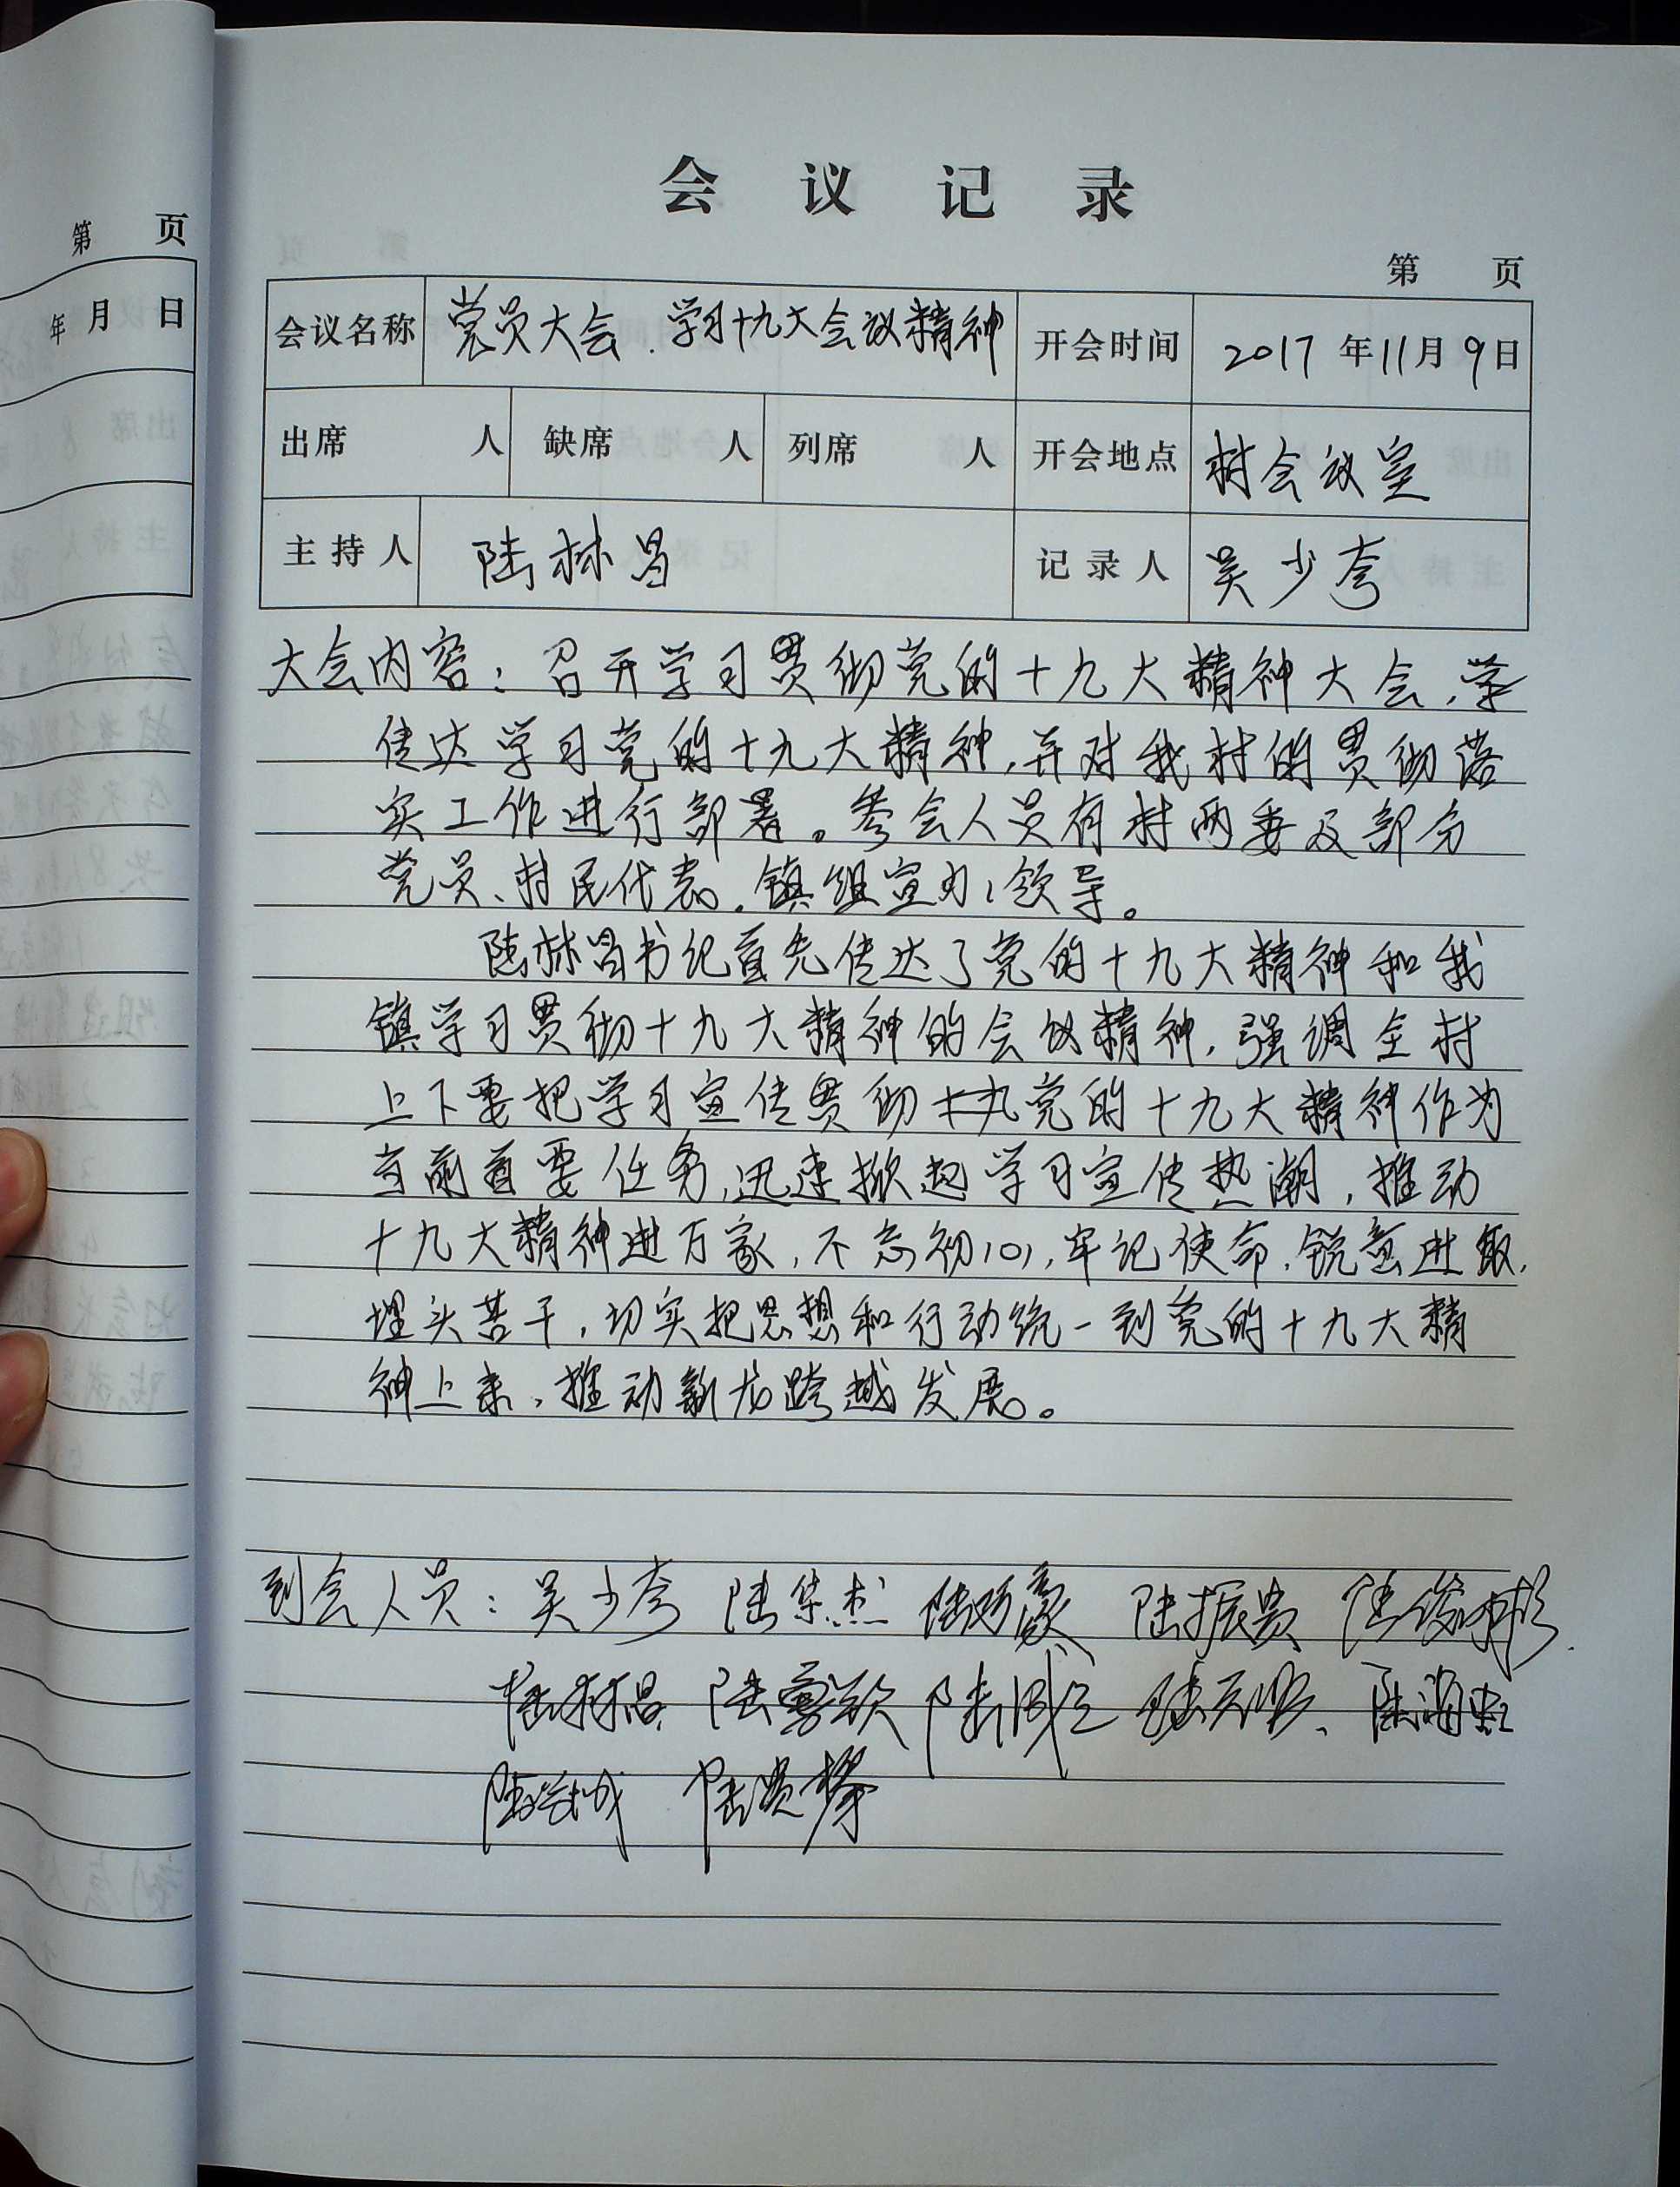 会议记录
第 页
第 页
年 月 日
会议名称 党员大会.学习十九大会议精神 开会时间 2017年11月9日
出席 人 缺席 人 列席 人 开会地点 村会议室
主持人 陆林昌 记录人 吴少夸
大会内容:召开学习贯彻党的十九大精神大会,
传达学习党的十九大精神,并对我村的贯彻落
实工作进行部署。参会人员有村两委及部分
党员、村民代表。镇组宣办领导。
陆林昌书记首先传达了党的十九大精神和我
镇学习贯彻十九大精神的会议精神,强调全村
上下要把学习宣传贯彻党的十九大精神作为
当前首要任务,迅速掀起学习宣传热潮,推动
十九大精神进万家,不忘初心,牢记使命,锐意进取,
埋头苦干,切实把思想和行动统一到党的十九大精
神上来,推动新龙跨越发展。
到会人员:吴少夸 陆华杰 陆 豪 陆振贵 陆俊彬
陆林昌 陆 欽 陆 陆 陆海
陆 城 陆贤